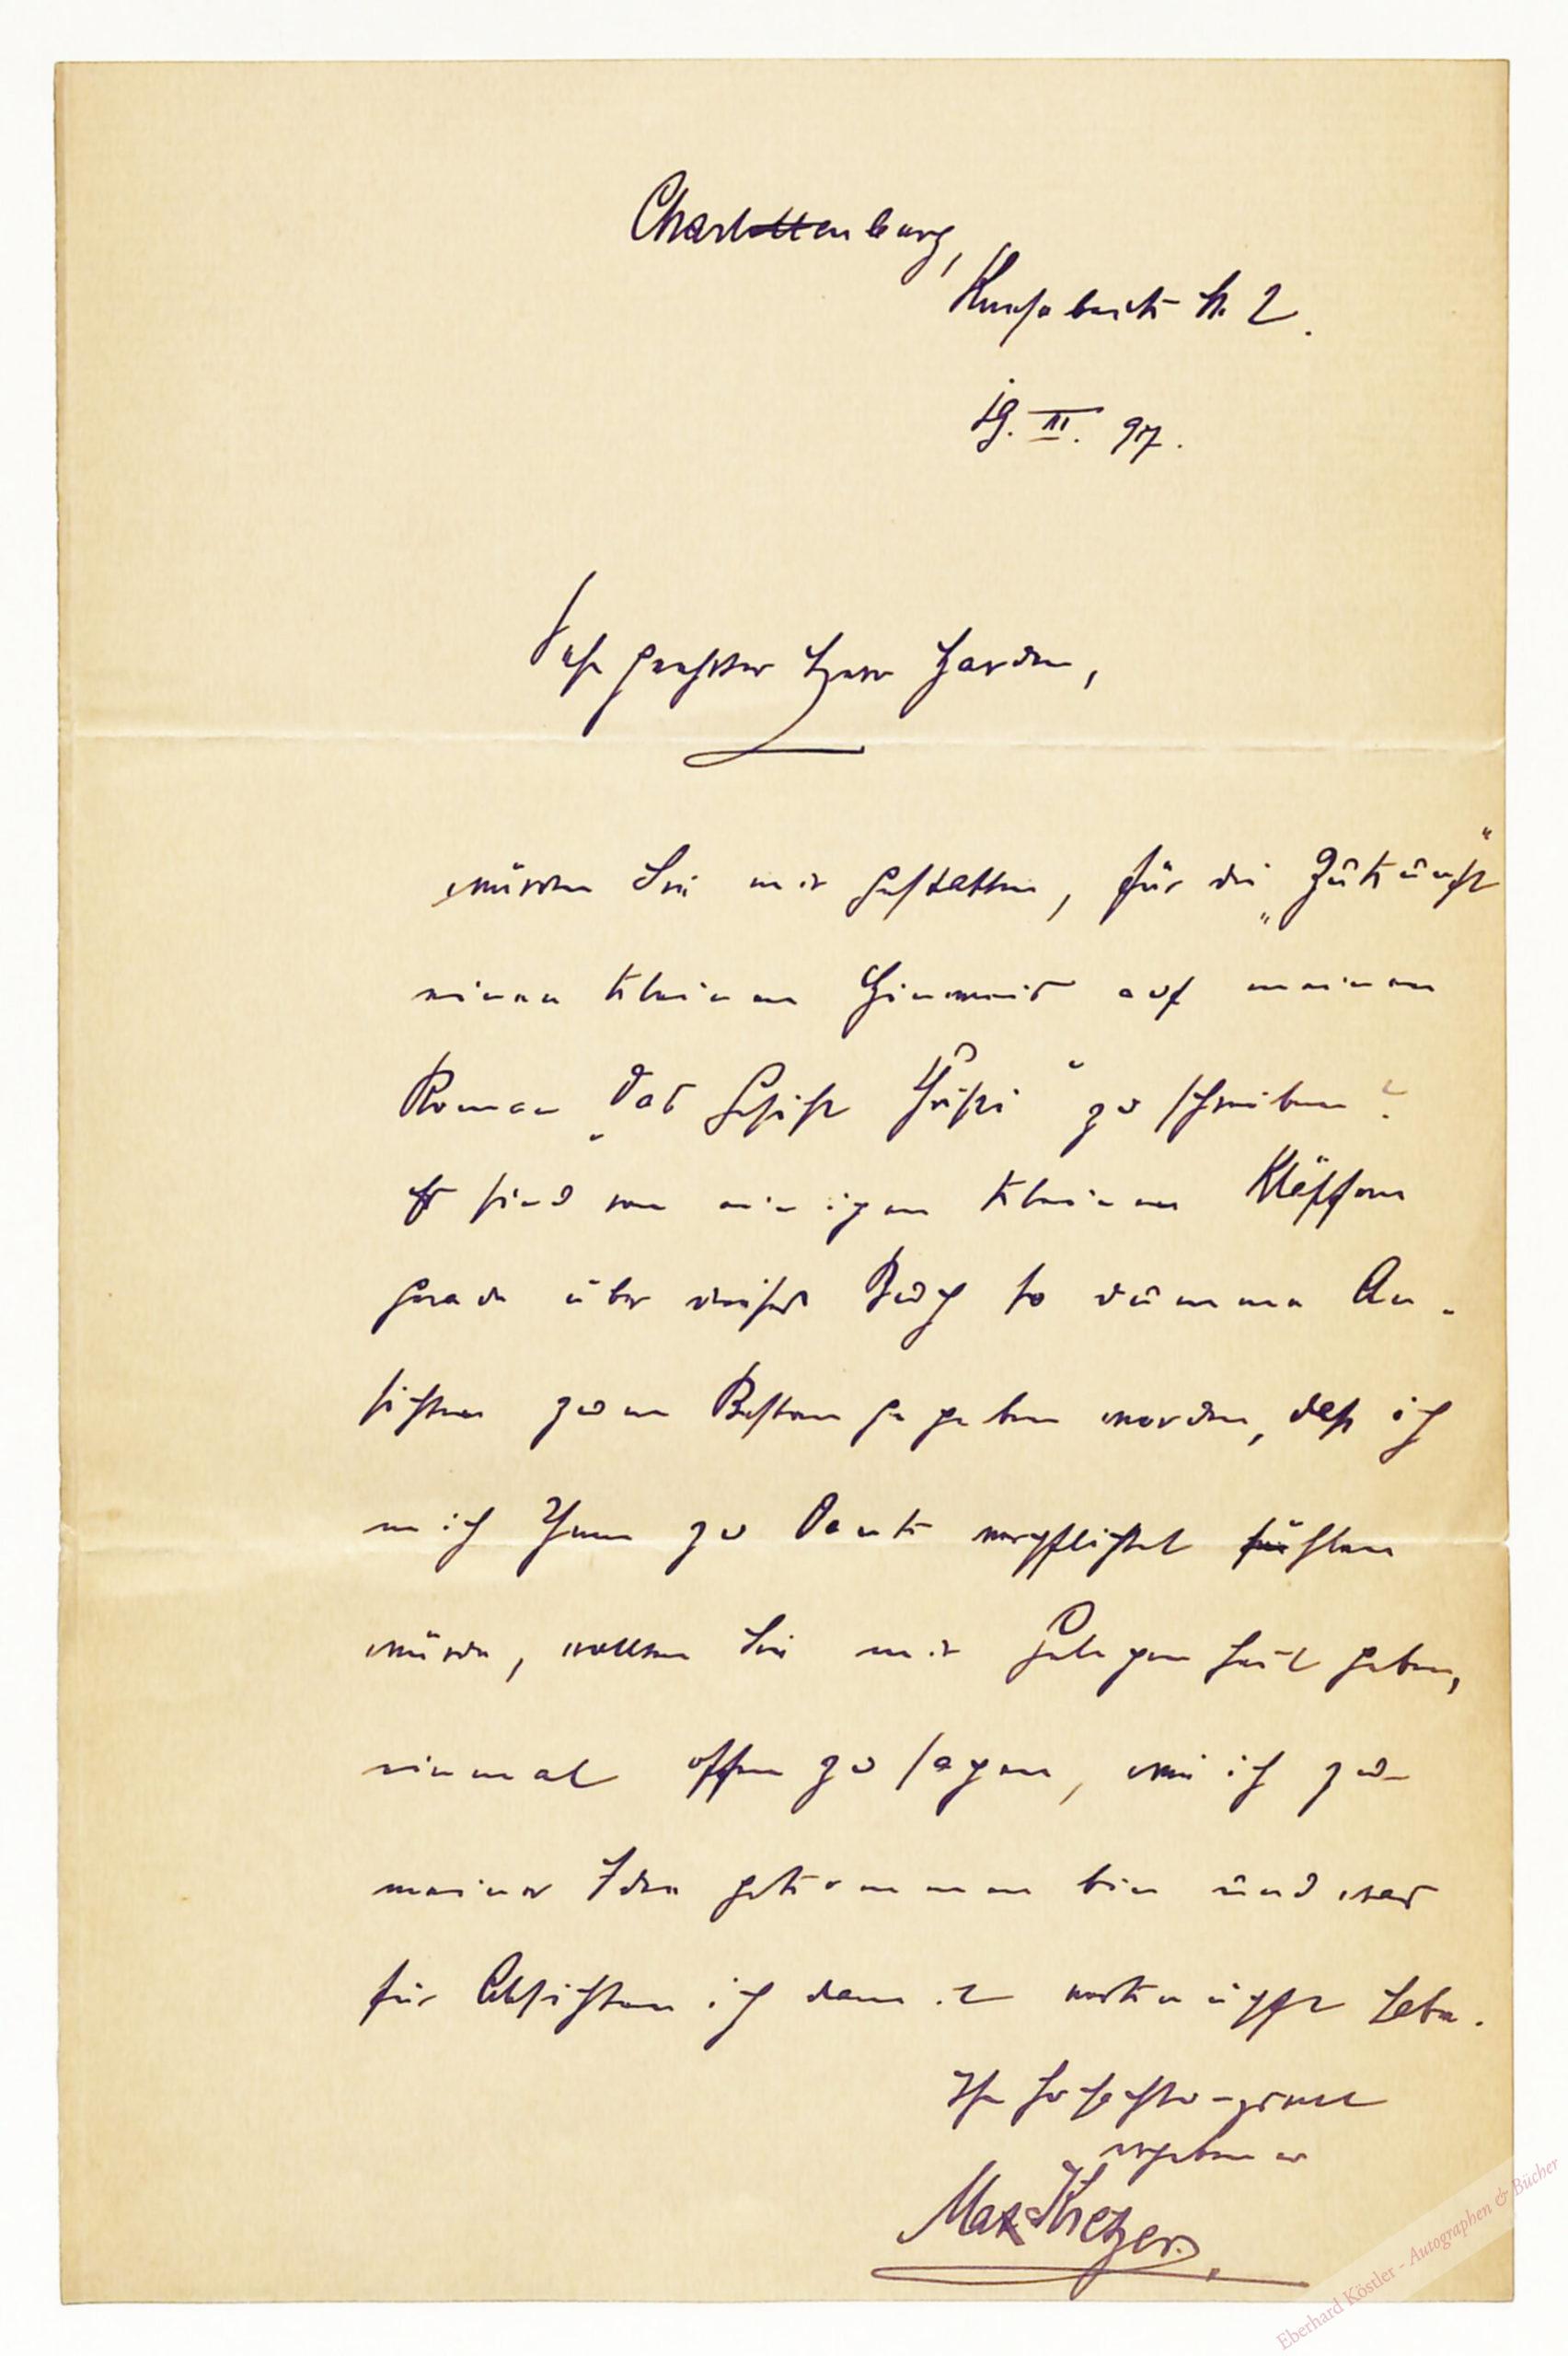 Charlottenburg,
Knesebeckstr. 2.
19. III. 97.
Sehr geehrter Herr Harden,
würden Sie mir gestatten, für die „Zukunft“
einen kleinen Hinweis auf meinen
Roman „Das Gesicht Christi“ zu schreiben?
Es sind von einigen kleinen Kläffern
gerade über dieses Buch so dumme An-
sichten zum Besten gegeben worden, daß ich
mich Ihnen zu Dank verpflichtet fühlen
würde, wollten Sie mir Gelegenheit geben,
einmal offen zu sagen, wie ich zu
meiner Idee gekommen bin und was
für Absichten ich damit verknüpft habe.
Ihr
ergebener
Max Kretzer.
Eberhard Köstler - Autographen & Bücher